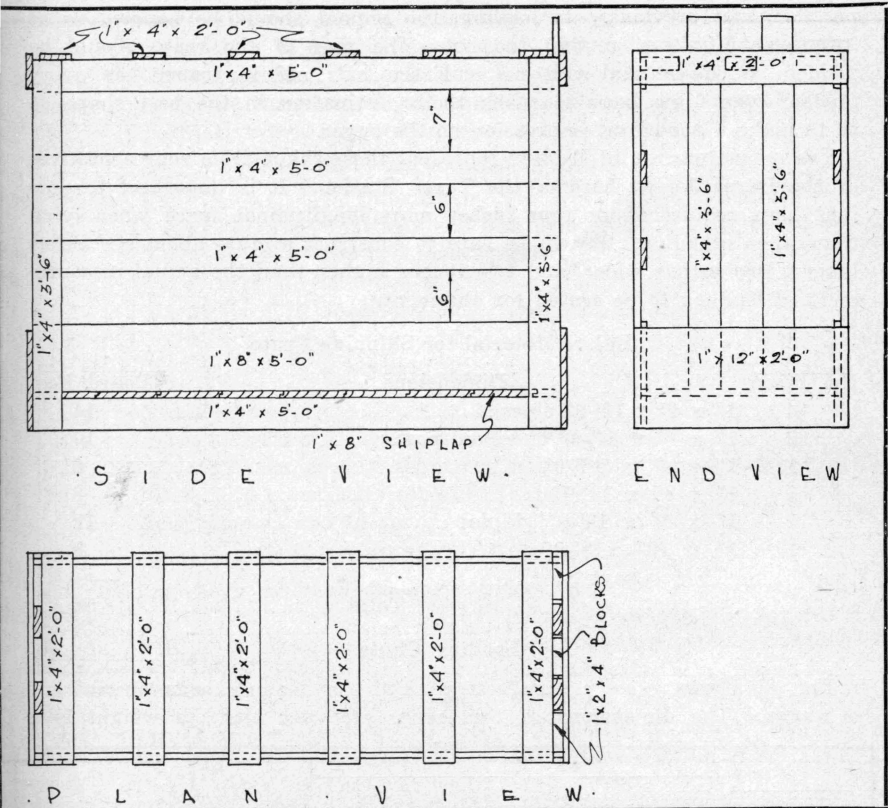 1" x 4" x 2'-0"
1" x 4" x 5'-0"
7"
1" x 4" x 5'-0"
6"
1" x 4" x 5'-0"
6"
1" x 4" x 3'-6"
1" x 4" x 3'-6"
1" x 8" x 5'-0"
1" x 4" x 5'-0"
1" x 8" SHIPLAP
SIDE VIEW.
1" x 4" x 2'-0"
1" x 4" x 3'-6"
1" x 4" x 3'-6"
1" x 12" x 2'-0"
END VIEW
1" x 4" x 2'-0"
1" x 4" x 2'-0"
1" x 4" x 2'-0"
1" x 4" x 2'-0"
1" x 4" x 2'-0"
1" x 4" x 2'-0"
1 x 2 x 4" BLOCKS
PLAN VIEW.